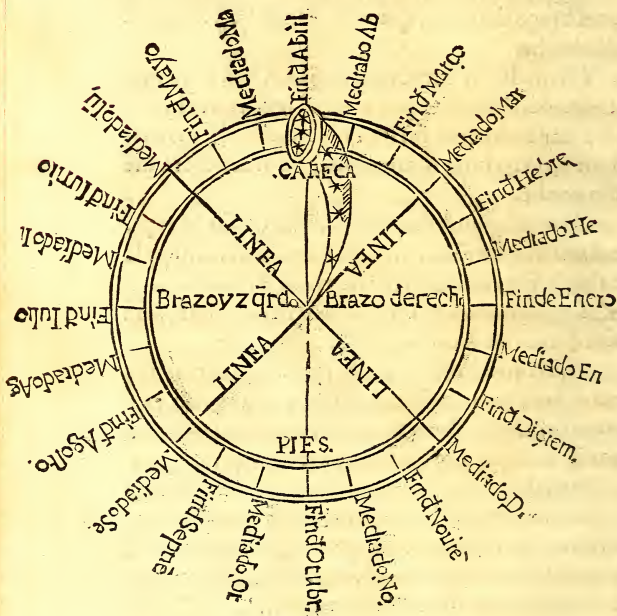 Fin đ Abril
Mediado Ab
Fin đ Março
Mediado Mar
Fin đ Hebre
Mediado He
Fin de Enero
Mediado En
Fin đ Diçiem.
Mediado D.
Fin đ Nouiē
Mediado No.
Fin đ Otubr.
Mediado, Ot
Fin đ Sepuē
Mediado Se
Fin đ Agosto.
Mediado Ag
Fin đ Iulio
Mediado Il
Fin đ Iunio
Mediado Iu,
Fin đ Mayo
Mediado Ma
.CABECA
LINEA
LINEA
Brazo yzq̄rdo.
Brazo derecho
LINEA
LINEA
PIES.